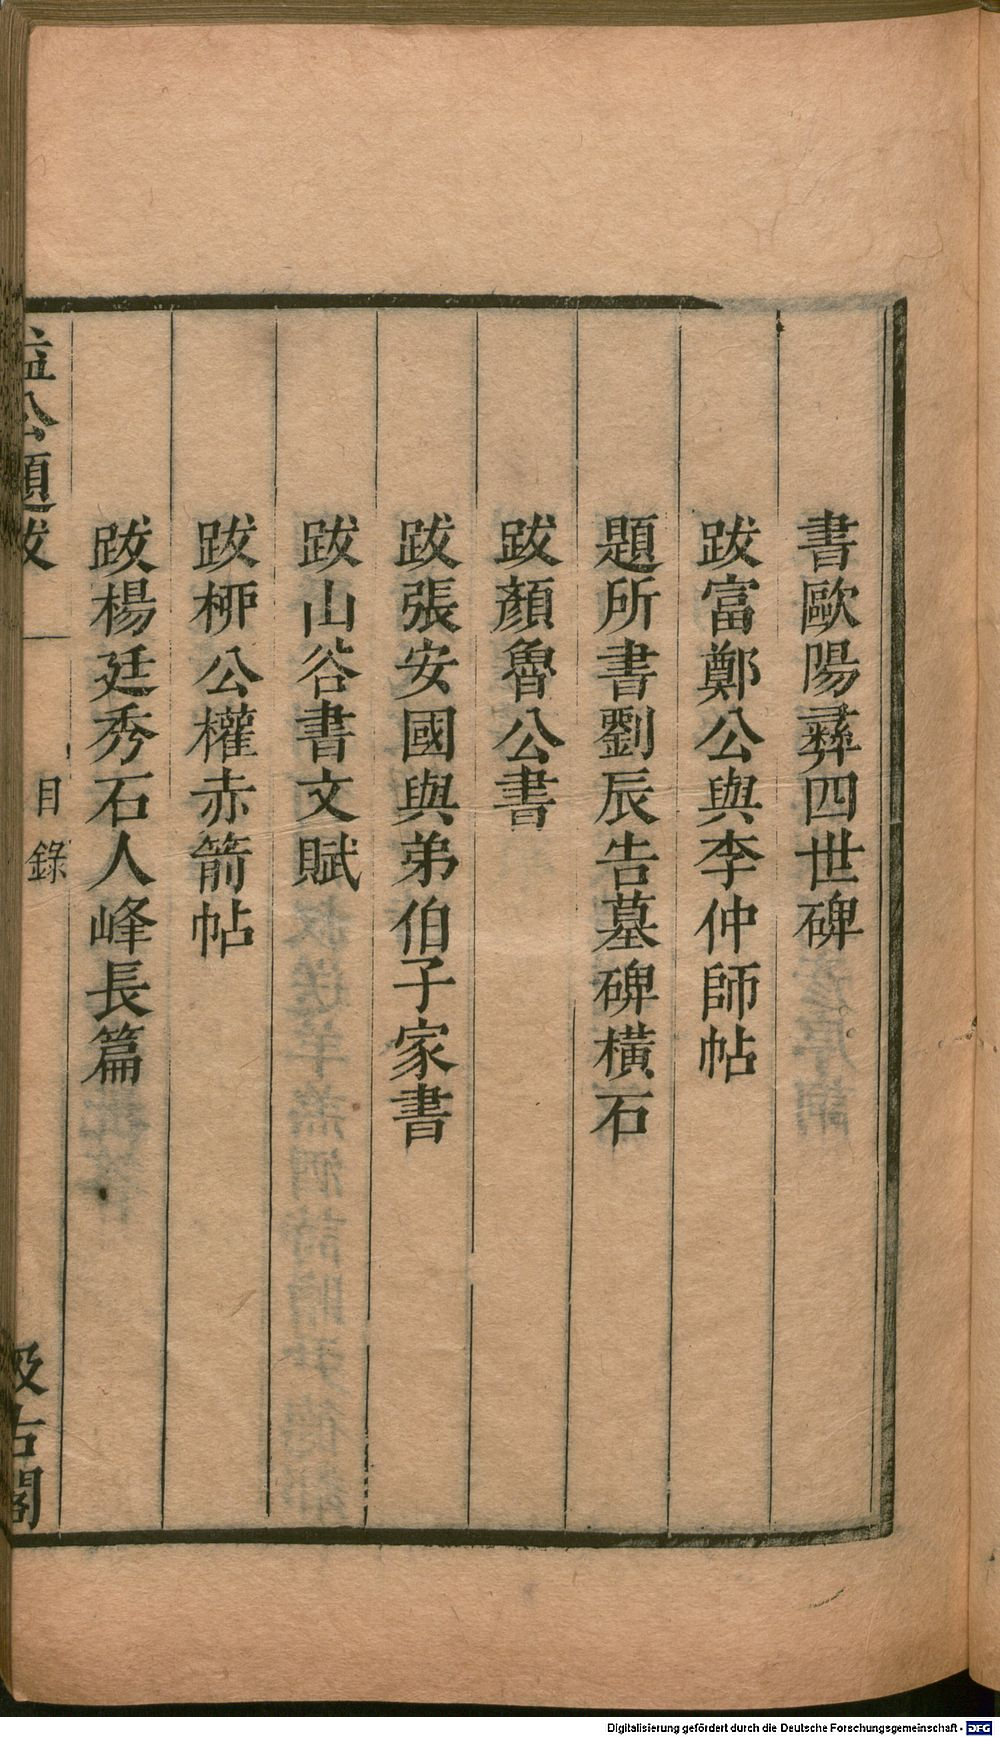 書歐陽彝四世碑
跋富鄭公與李仲師帖
題所書劉辰告墓碑橫石
跋顏魯公書
跋張安國與弟伯子家書
跋山谷書文賦
跋桺公權赤箭帖
跋楊廷秀石人峰長篇
益公題跋
目錄
汲古閣
Digitalisierung gefördert durch die Deutsche Forschungsgemeinschaft - DFG